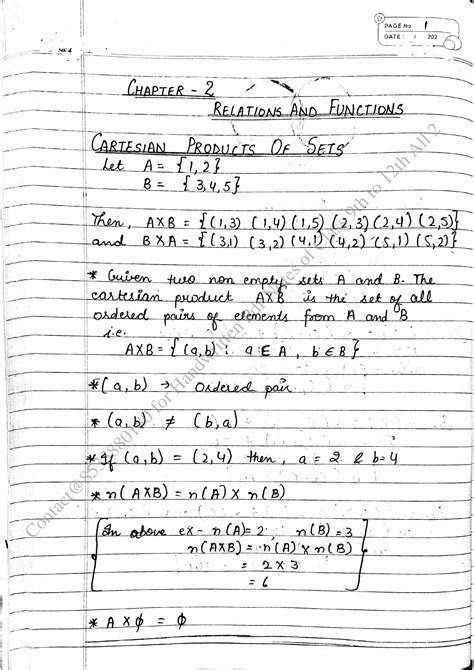 PAGE No. 1
DATE: / /202
CHAPTER - 2
RELATIONS AND FUNCTIONS
CARTESIAN PRODUCTS OF SETS
Let A = {1,2}
B = {3,4,5}
Then, AXB = {(1,3) (1,4) (1,5) (2,3) (2,4) (2,5)}
and BXA = {(3,1) (3,2) (4,1) (4,2) (5,1) (5,2)}
* Given two non empty sets A and B. The
cartesian product AXB is the set of all
ordered pairs of elements from A and B
i.e.
AXB = {(a,b) : a ∈ A, b ∈ B}
* (a,b) → Ordered pair
* (a,b) ≠ (b,a)
* If (a,b) = (2,4) then, a = 2 & b = 4
* n(AXB) = n(A) X n(B)
[In above ex - n(A)=2 , n(B) = 3
n(AXB) = n(A) X n(B)
= 2 X 3
= 6]
* A X ϕ = ϕ
for Handwritten Notes of 9th to 12th All